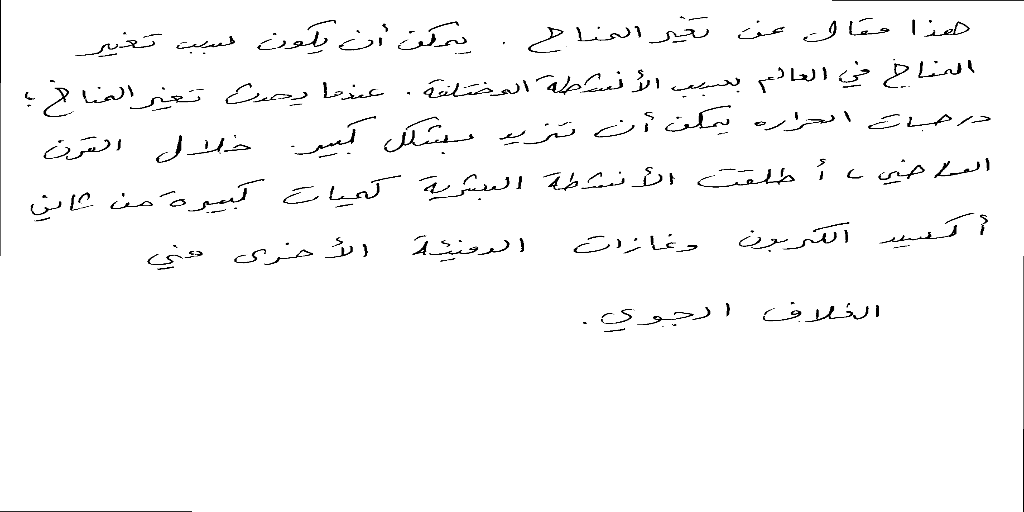 هذا مقال عن تغير المناخ . يمكن أن يكون سبب تغير
المناخ في العالم بسبب الأنشطة المختلفة . عندما يحدث تغير المناخ ؛
درجات الحراره يمكن أن تزيد بشكل كبير . خلال القرن
الماضي ، أطلقت الأنشطة البشرية كميات كبيرة من ثاني
أكسيد الكربون وغازات الدفيئة الأخرى في
الغلاف الجوي .